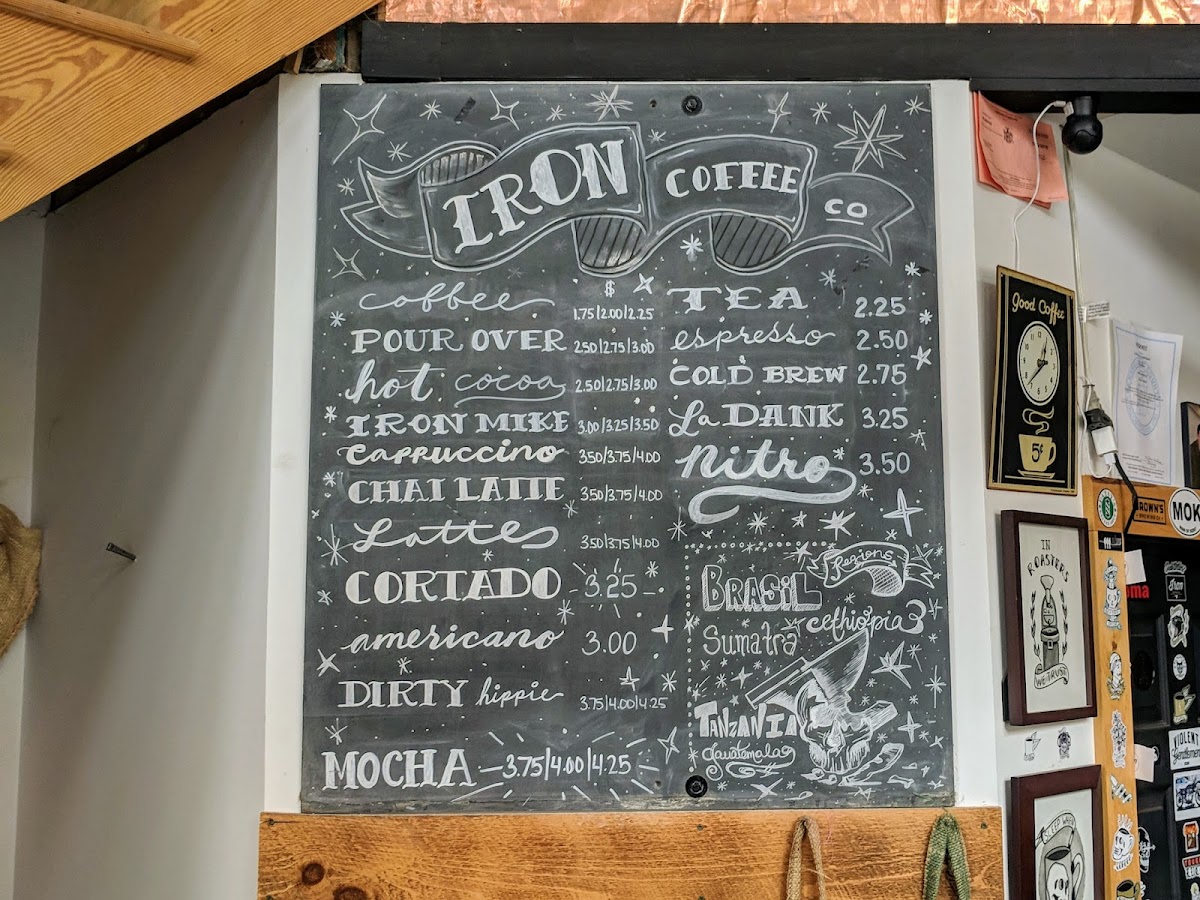 IRON COFFEE CO
$
coffee 1.75/2.00/2.25
POUR OVER 2.50/2.75/3.00
hot cocoa 2.50/2.75/3.00
IRON MIKE 3.00/3.25/3.50
Cappuccino 3.50/3.75/4.00
CHAI LATTE 3.50/3.75/4.00
Latte 3.50/3.75/4.00
CORTADO 3.25
americano 3.00
DIRTY hippie 3.75/4.00/4.25
MOCHA 3.75/4.00/4.25
TEA 2.25
espresso 2.50
COLD BREW 2.75
La DANK 3.25
Nitro 3.50
Regions
BRASIL
Sumatra
TANZANIA
Guatemala
Good Coffee
5¢
IN
ROASTERS
WE TRUST
MOK
SLEEP WHEN
VIOLENT
Gentlemen